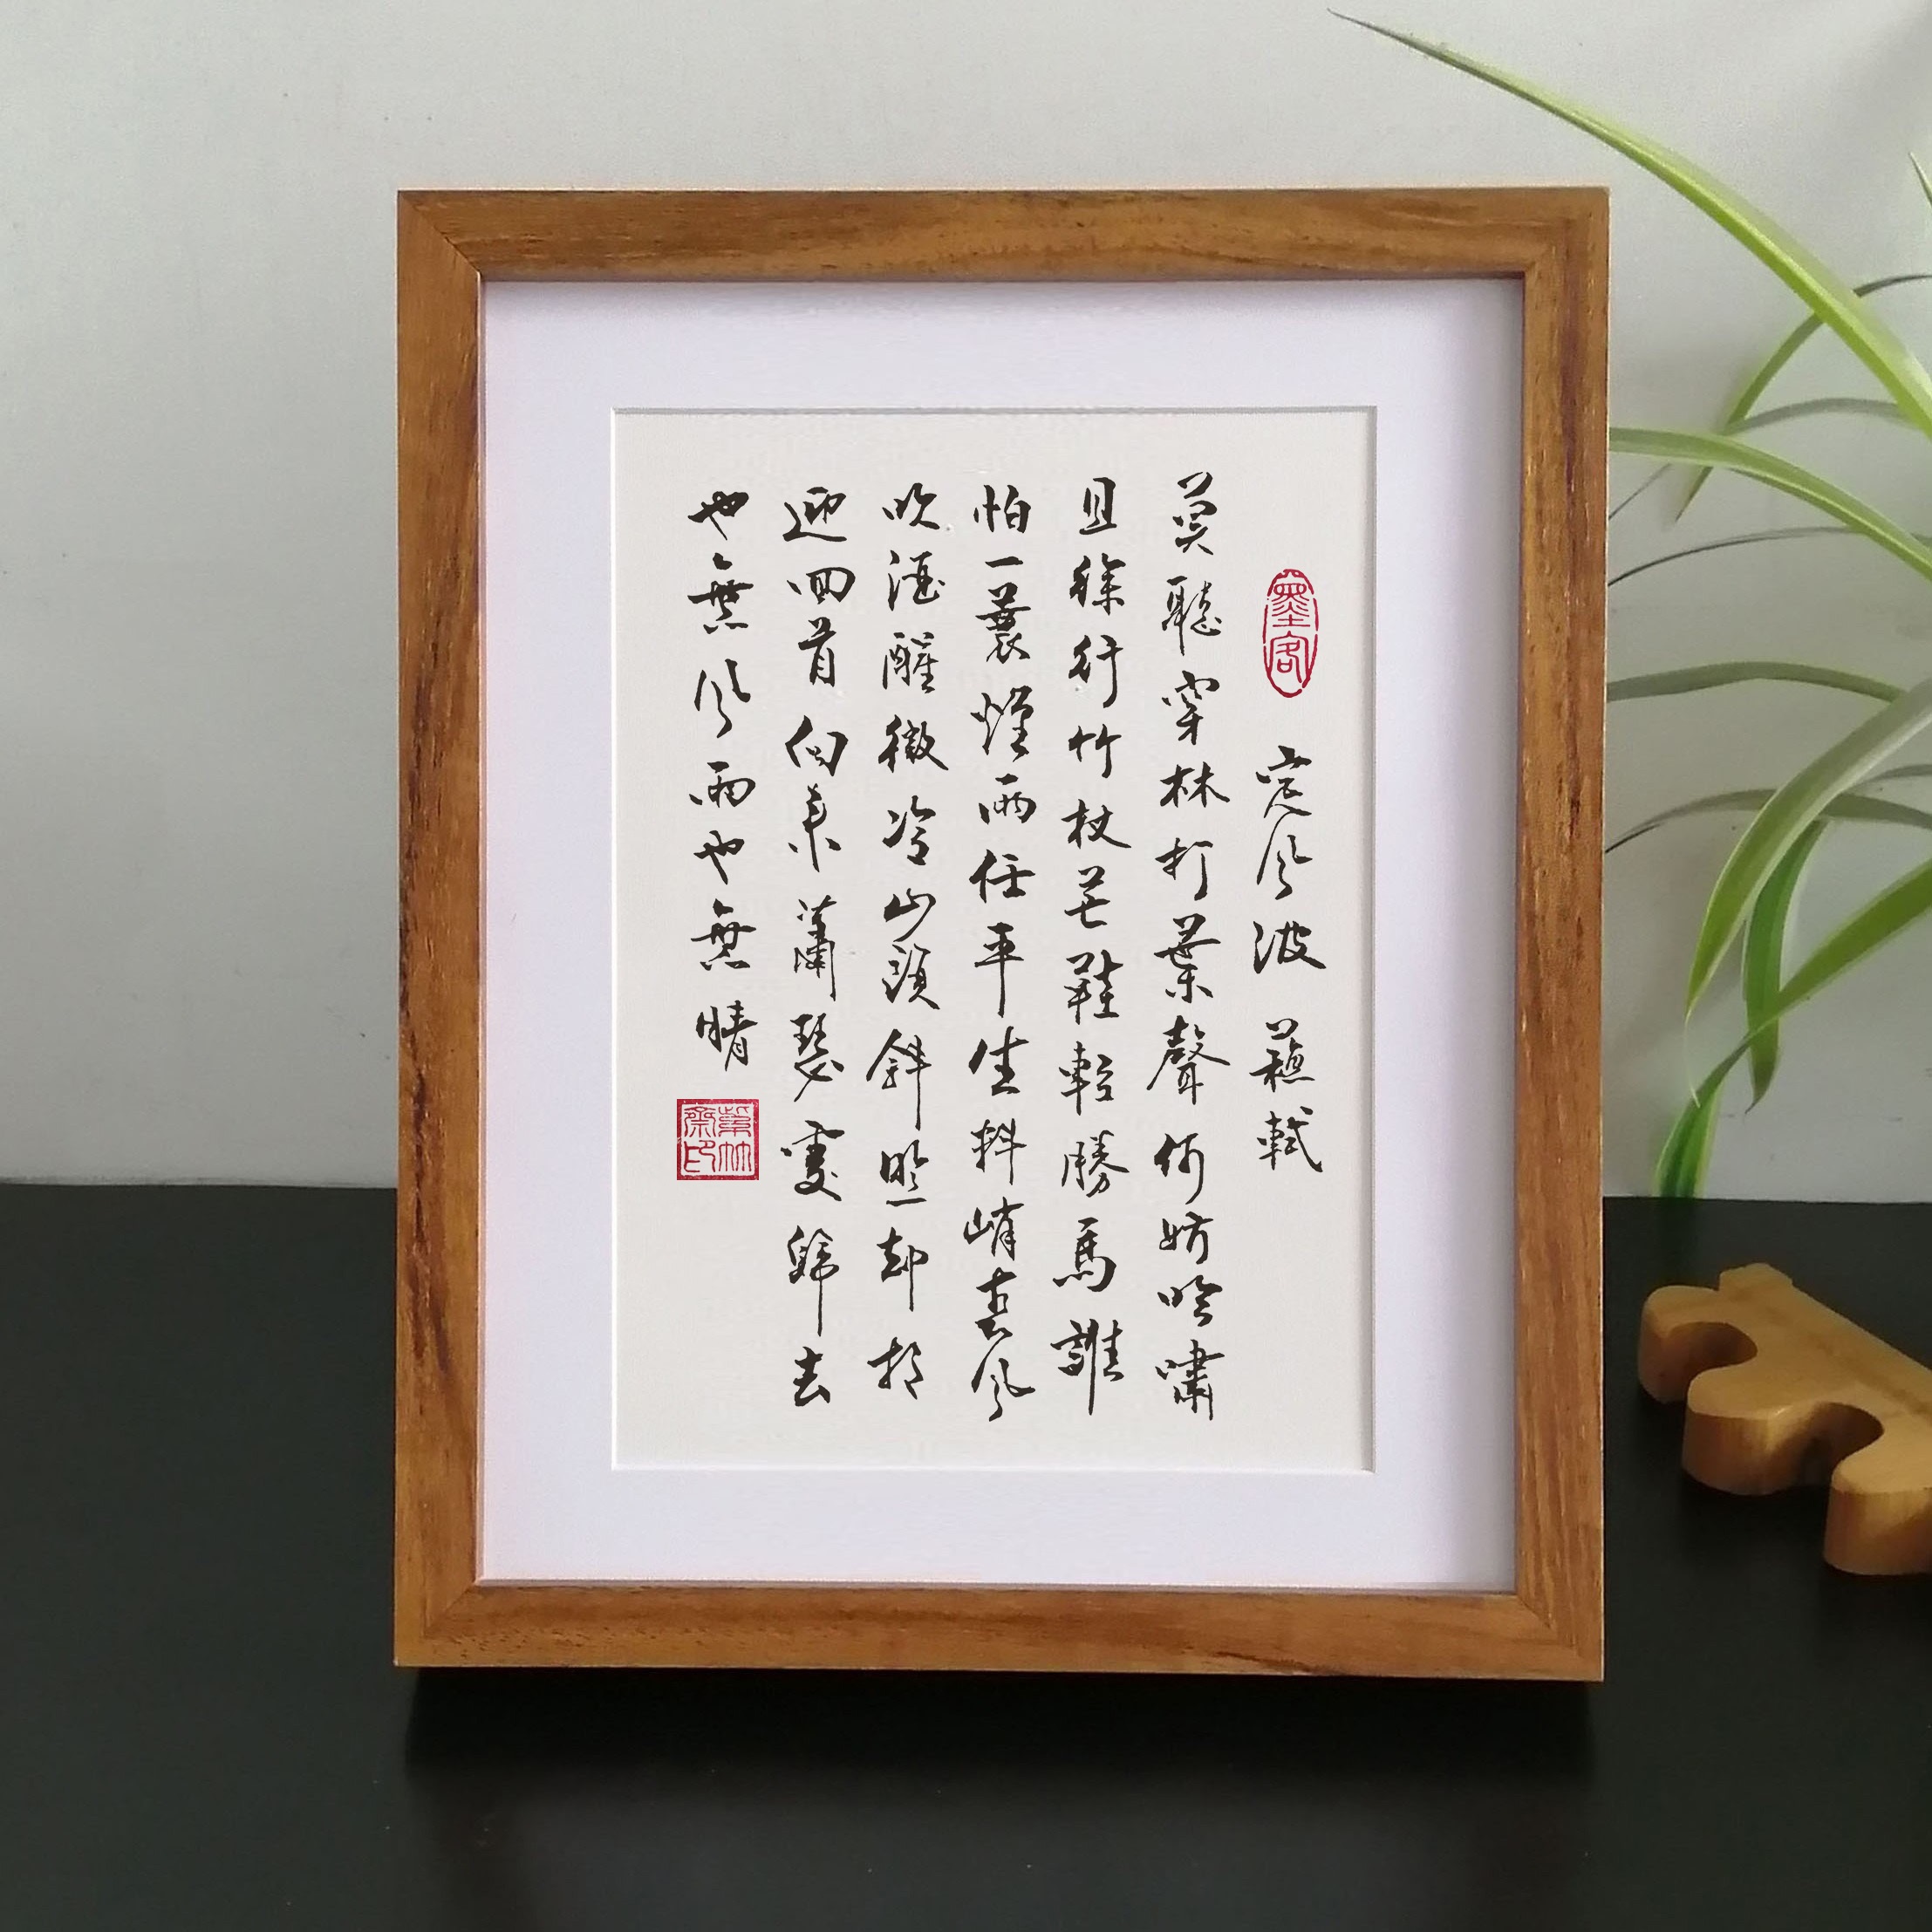 墨客
定風波 蘇軾
莫聽穿林打葉聲何妨吟嘯
且徐行竹杖芒鞋輕勝馬誰
怕一蓑煙雨任平生料峭春風
吹酒醒微冷山頭斜照卻相
迎回首向來蕭瑟處歸去
也無風雨也無晴